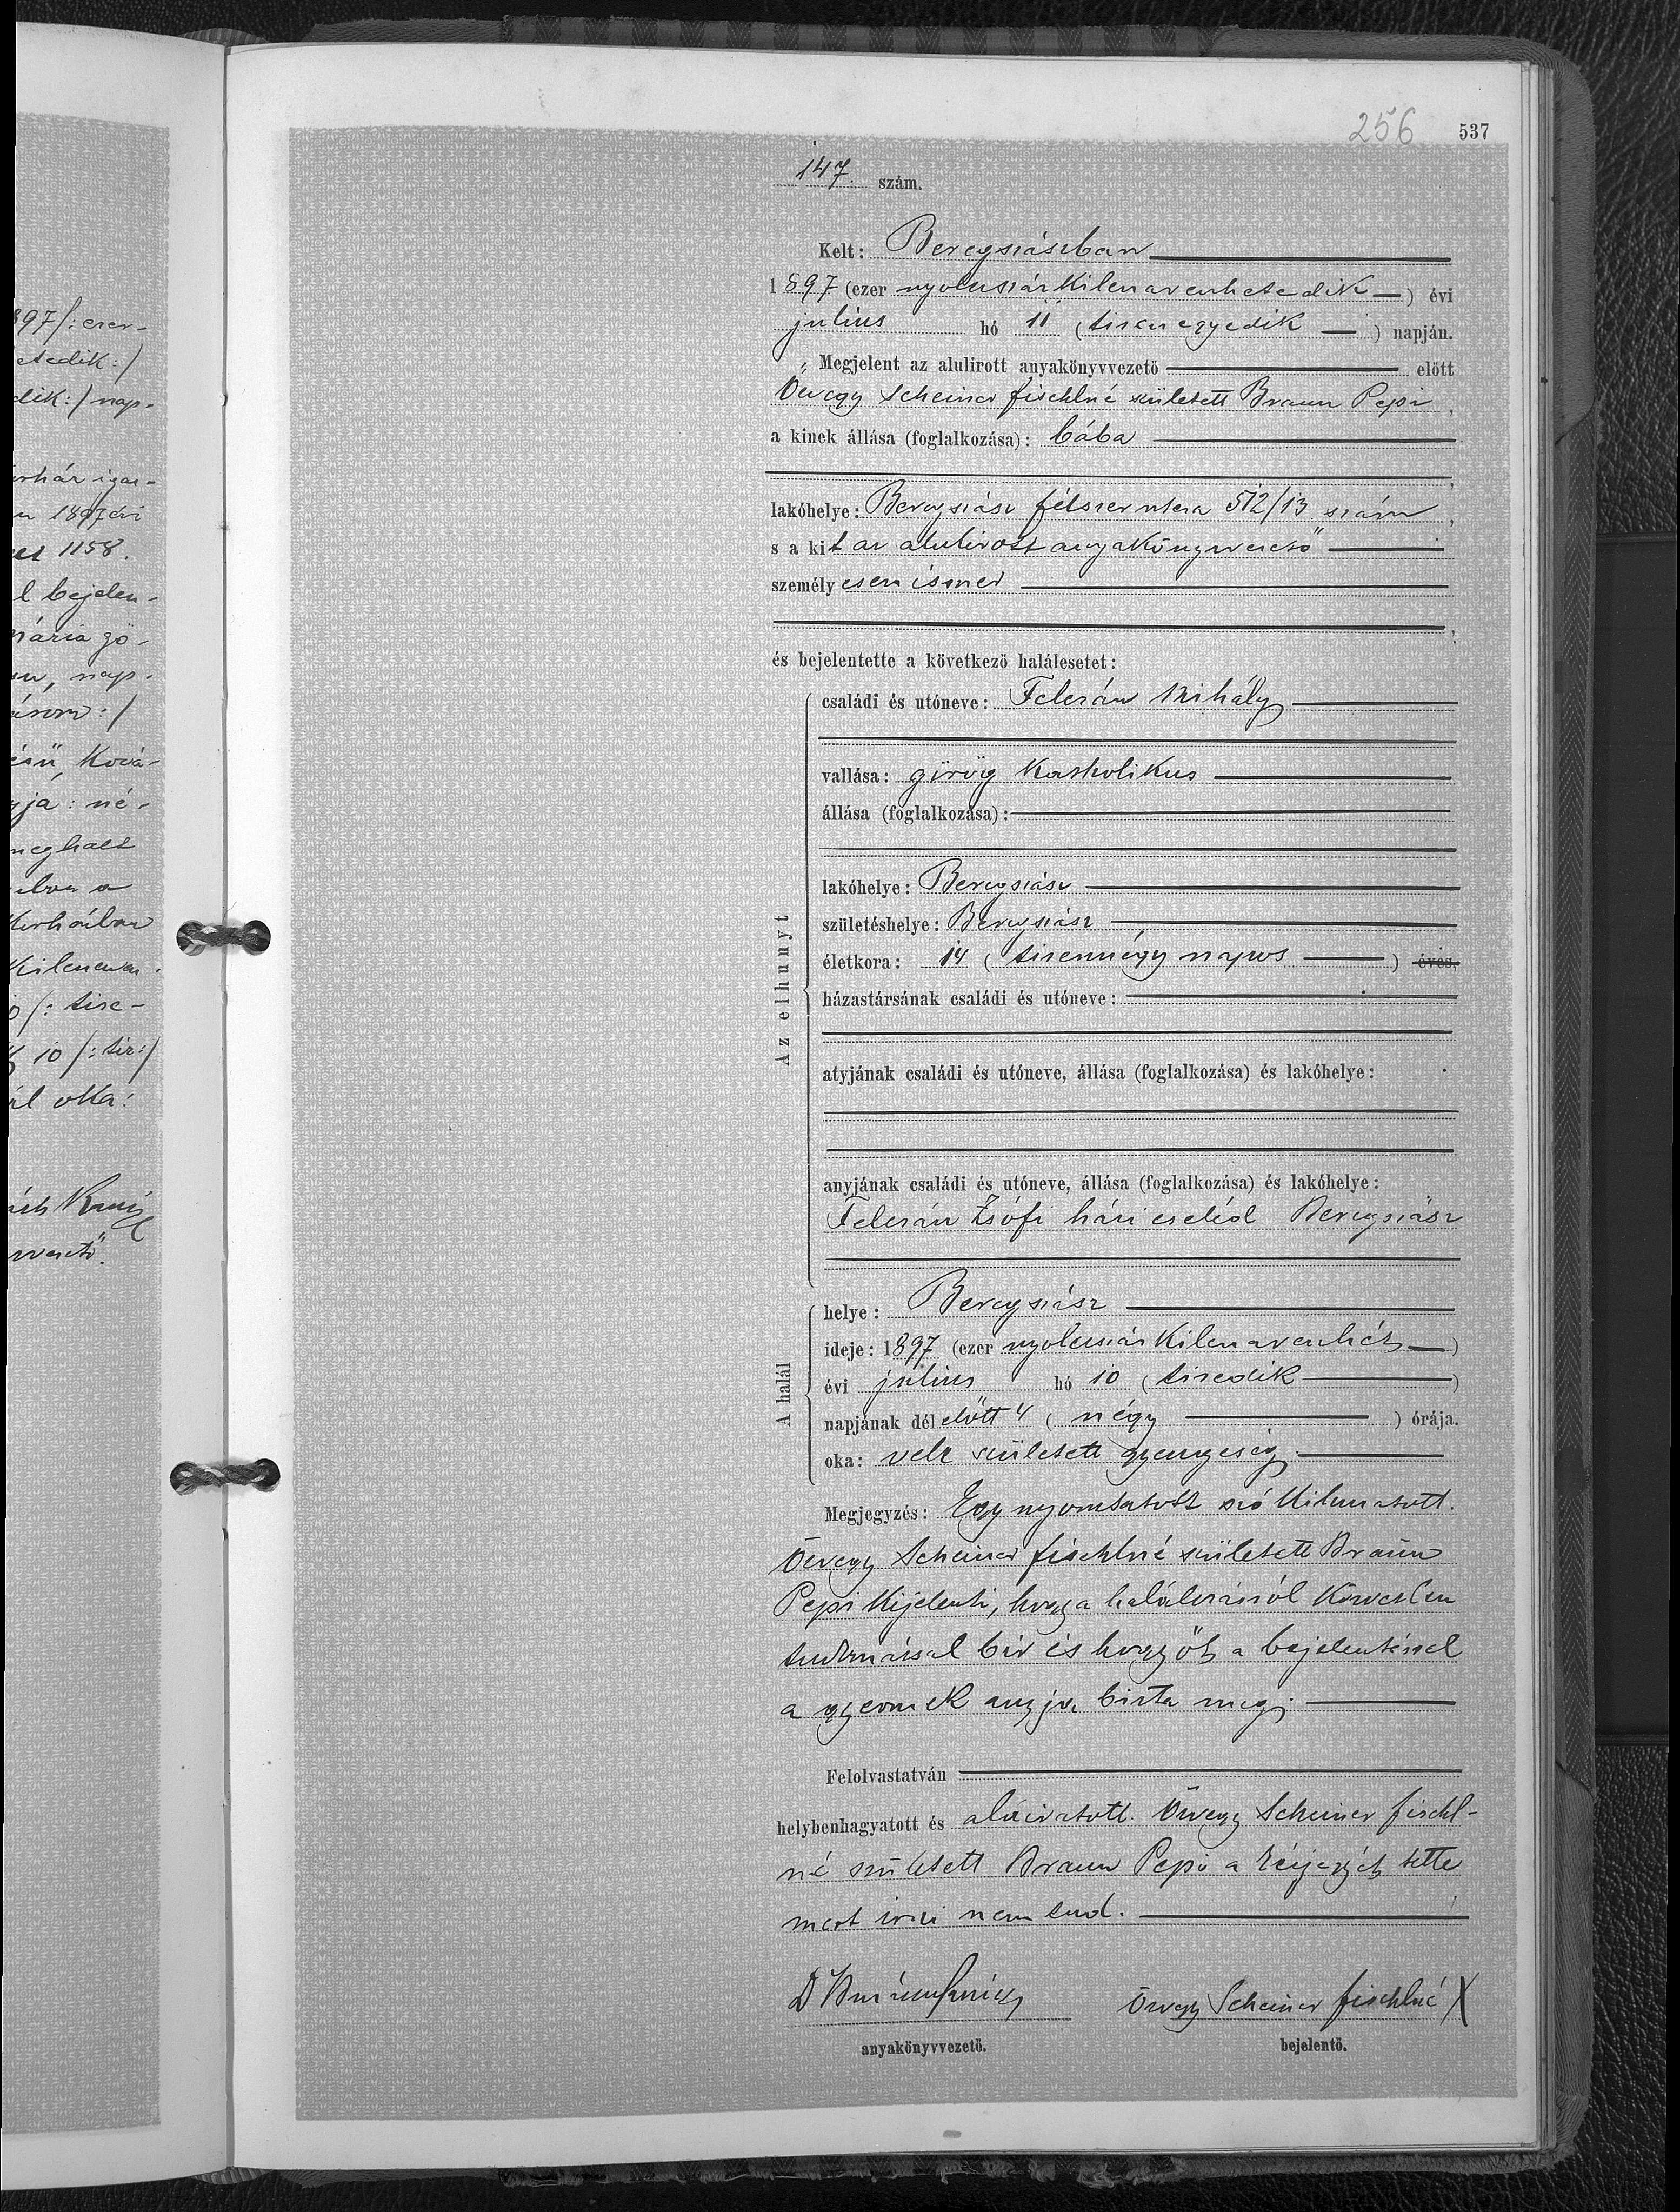 97/: ezer-
etedik:/
dik:/ nap-
orhár igaz-
1897 évi
1158.
l bejelen-
mária gö-
nap-
ásom:/
Ková-
yja: né-
meghalt
a
Kilencven
10 /: tize-
10 /: tiz:/
ál oka:
256 537
147. szám.
Kelt: Beregszászban
1897 (ezer nyolcszázkilencvenhetedik) évi
julius hó 11 (tizenegyedik) napján.
Megjelent az alulirott anyakönyvvezető előtt
Özvegy Scheiner Fischlné született Braun Pepi,
a kinek állása (foglalkozása): bába
lakóhelye: Beregszász félszer utca 512/13 szám,
s a kit az alulirott anyakönyvvezető
személyesen ismer
és bejelentette a következő halálesetet:
Az elhunyt
családi és utóneve: Felczán Mihály
vallása: görög katholikus
állása (foglalkozása):
lakóhelye: Beregszász
születéshelye: Beregszász
életkora: 14 (tizennégy napos) éves.
házastársának családi és utóneve:
atyjának családi és utóneve, állása (foglalkozása) és lakóhelye:
anyjának családi és utóneve, állása (foglalkozása) és lakóhelye:
Felczán Zsófi házi cseléd Beregszász
A halál
helye: Beregszász
ideje: 1897 (ezer nyolcszázkilencvenhét)
évi julius hó 10 (tizedik)
napjának délelőtt 4 (négy) órája.
oka: vele született gyengeség.
Megjegyzés: Egy nyomtatott szó kihuzatott.
Özvegy Scheiner Fischlné született Braun
Pepi kijelenti, hogy a halálozásról közvetlen
tudomással bir és hogy őt a bejelentéssel
a gyermek anyja bizta meg.
Felolvastatván
helybenhagyatott és aláiratott. Özvegy Scheiner Fischl-
né született Braun Pepi a kézjegyét tette
mert irni nem tud.
anyakönyvvezető.
Özvegy Scheiner Fischlné X
bejelentő.